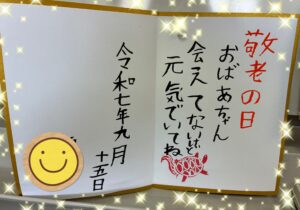 敬老の日
おばあちゃん
会えてないけど
元気でいてね
令和七年九月
十五日